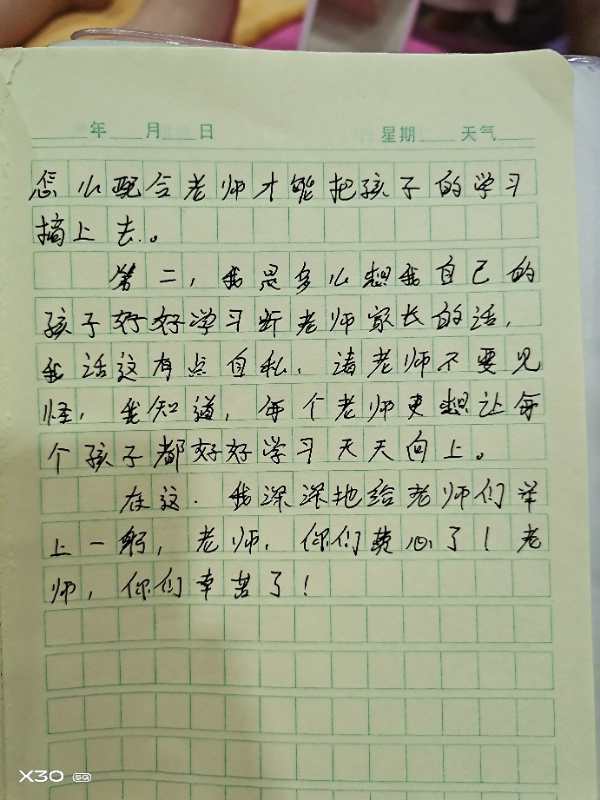 年 月 日 星期 天气
怎么配合老师才能把孩子的学习
搞上去.。
第二，我是多么想我自己的
孩子好好学习听老师家长的话，
我话这有点自私，请老师不要见
怪，我知道，每个老师更想让每
个孩子都好好学习天天向上。
在这．我深深地给老师们举
上一躬，老师，你们费心了！老
师，你们幸苦了！
X30 5G